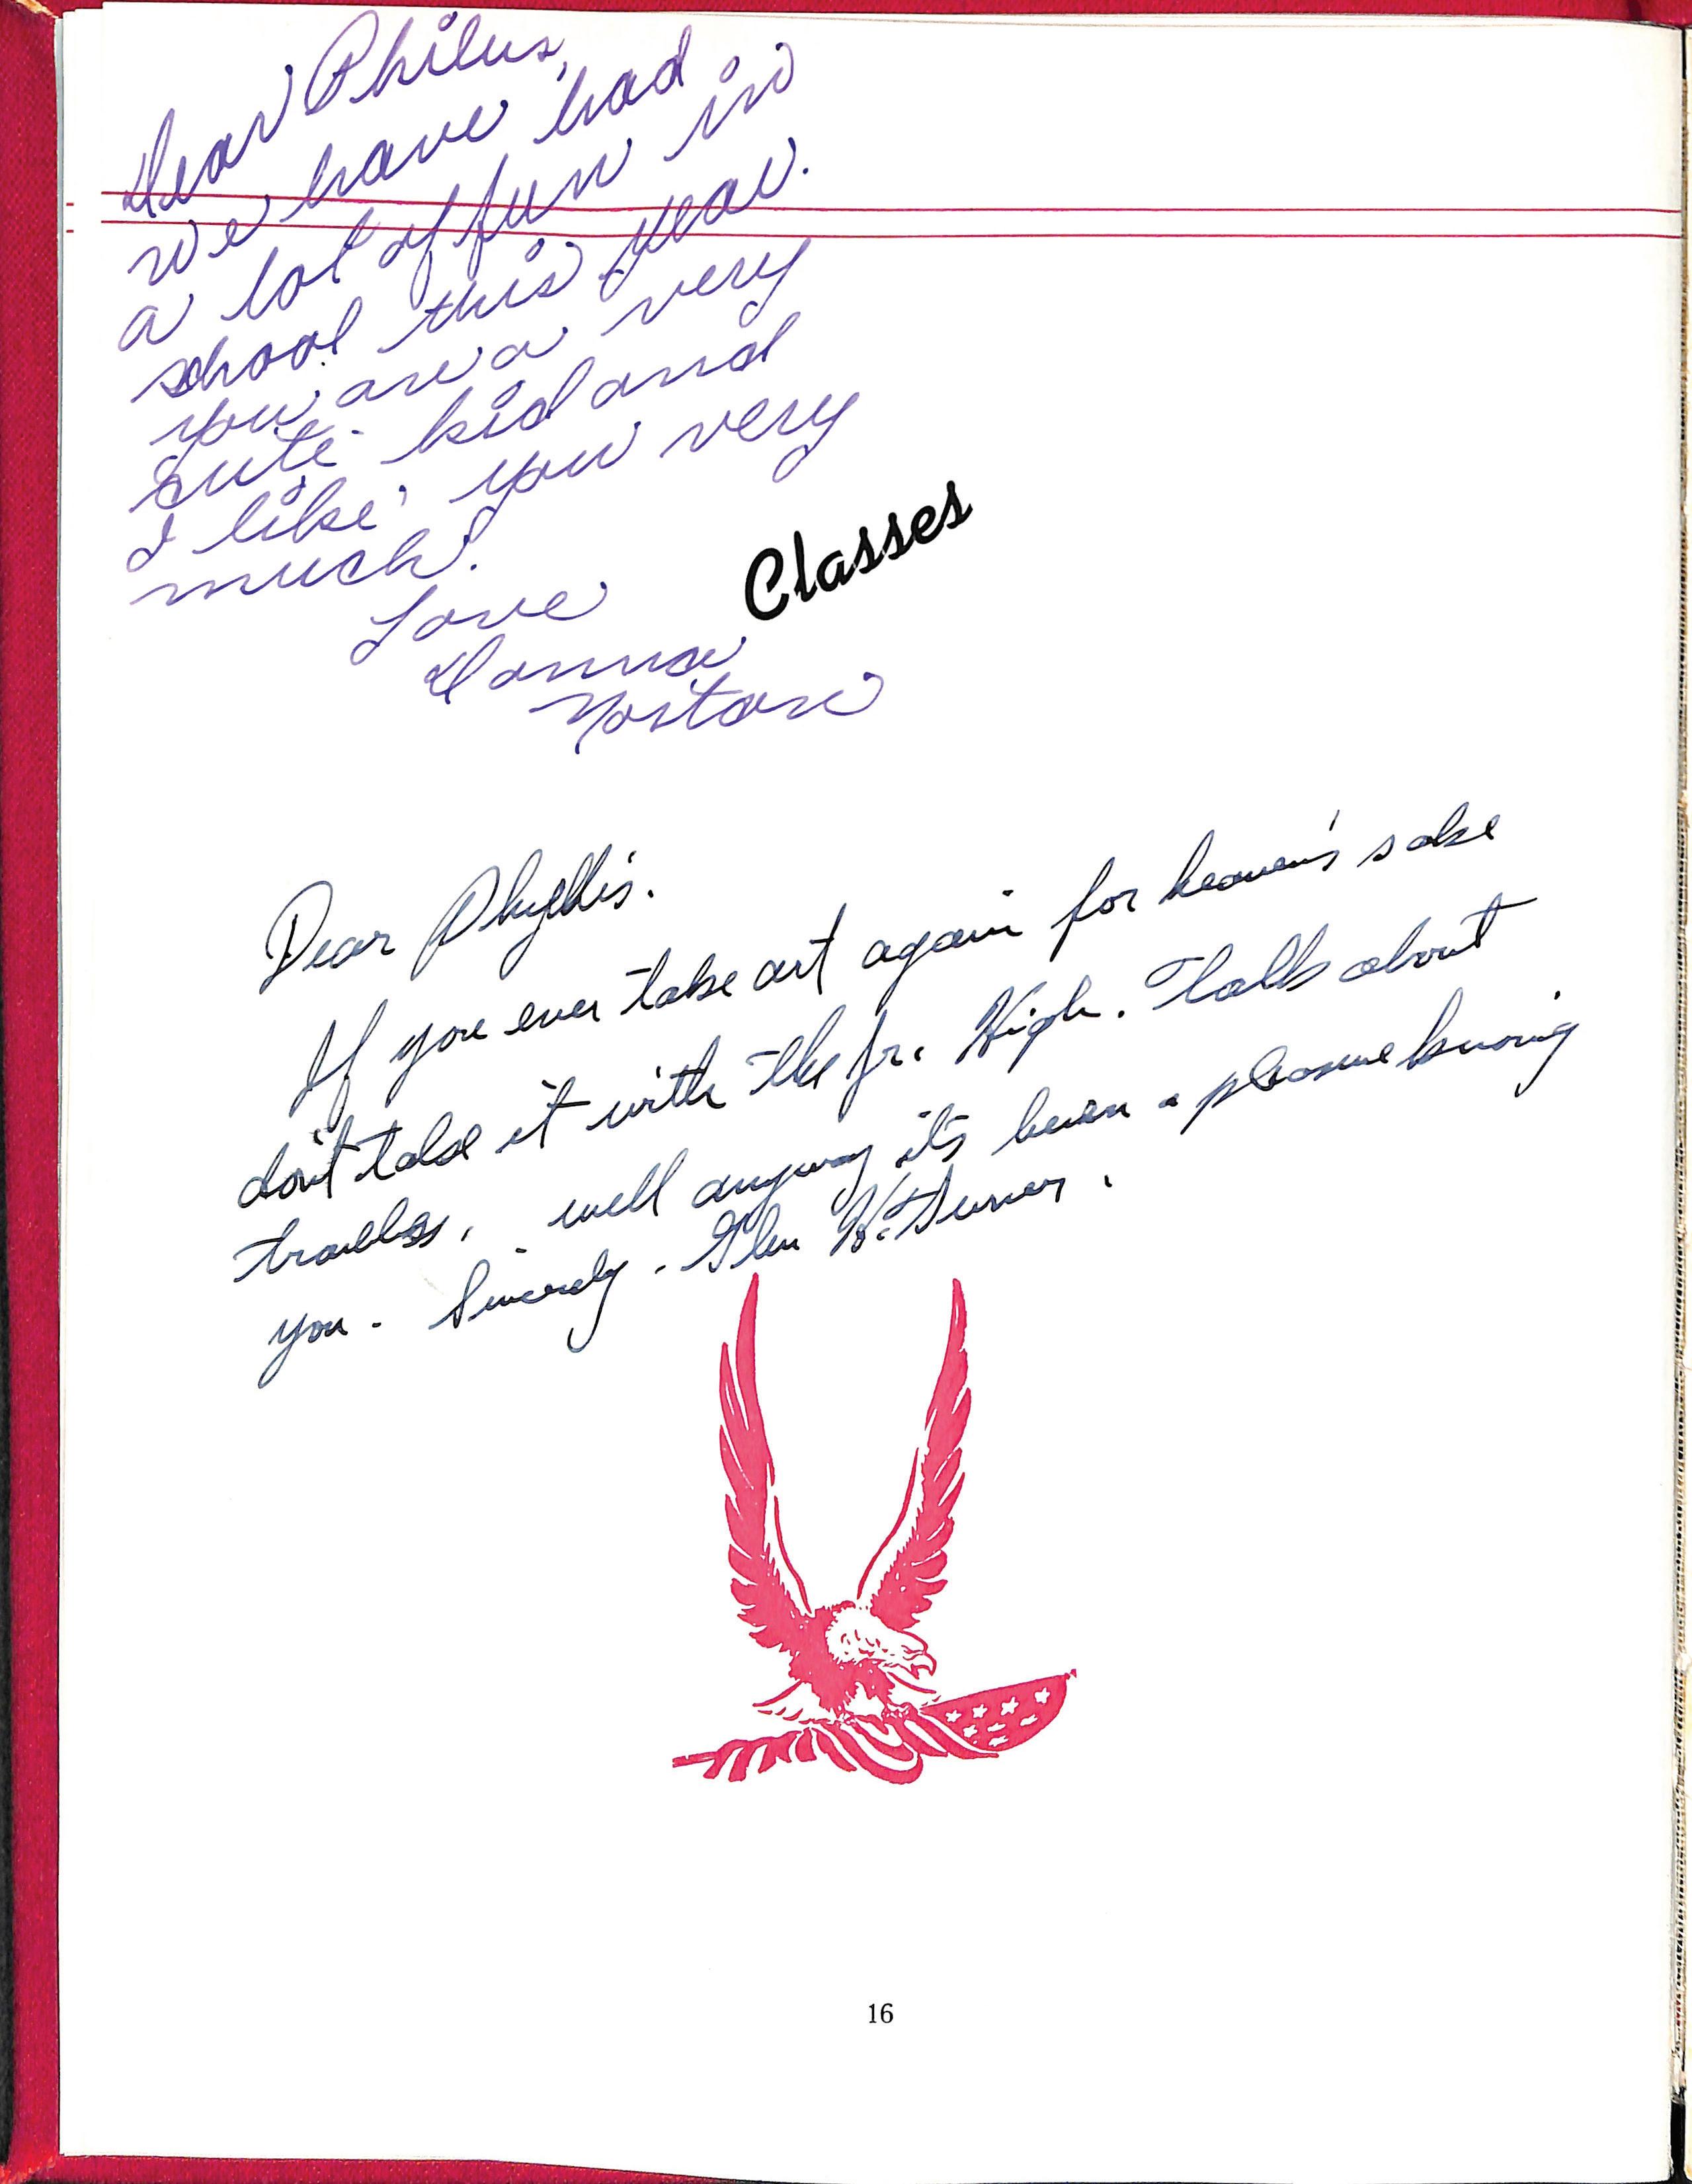 Dear Philus,
we have had
a lot of fun in
school this year.
you are a very
cute kid and
I like you very
much.
Love
Donna
Norton
Classes
Dear Phyllis.
If you ever take art again for heaven's sake
don't take it with the Jr. High. Talk about
troubles, well anyway it's been a pleasure knowing
you. Sincerely. Glen W. Turner.
16